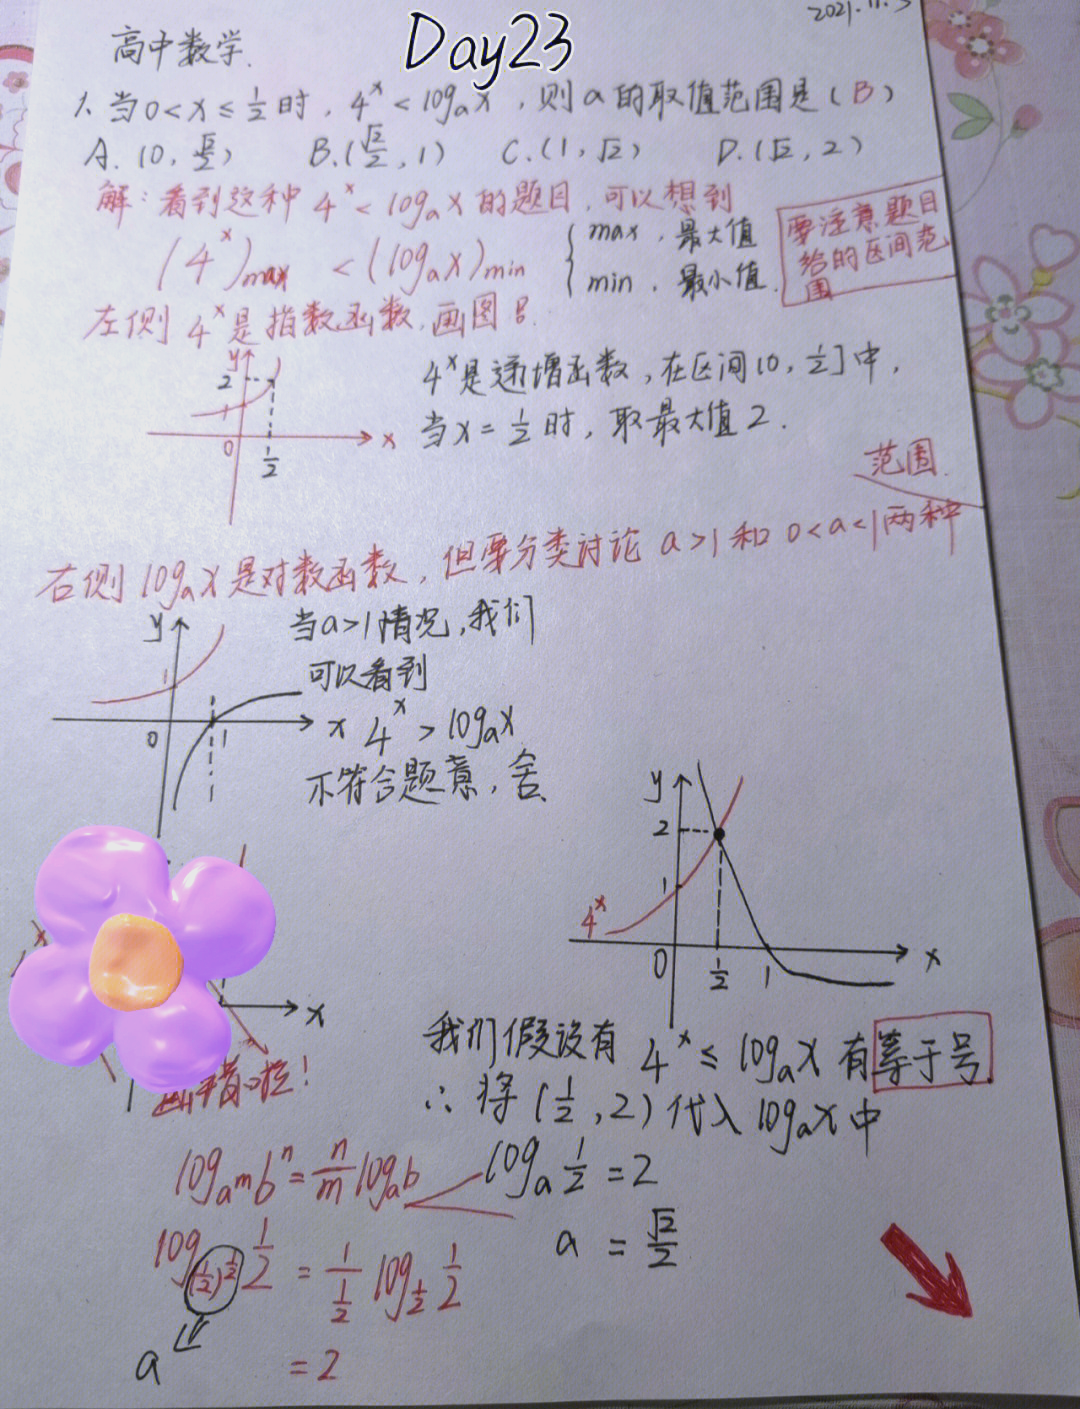 2021.11.3
Day23
高中数学.
1.当0<x≤1/2时，4^x<log_a x，则a的取值范围是（B）
A.(0，√2/2) B.(√2/2，1) C.(1，√2) D.(√2，2)
解：看到这种4^x<log_a x的题目，可以想到
(4^x)max <(log_a x)min { max，最大值
min，最小值.
要注意题目
给的区间范
围
左侧4^x是指数函数，画图
y
2
1
0
1/2
x
4^x是递增函数，在区间(0，1/2]中，
当x=1/2时，取最大值2.
范围.
右侧log_a x是对数函数，但要分类讨论a>1和0<a<1两种
y
1
0
1
x
当a>1情况，我们
可以看到
4^x>log_a x
不符合题意，舍
y
2
1
4^x
0
1/2
1
x
x
画错啦！
我们假设有4^x≤log_a x有等于号.
∴将(1/2,2)代入log_a x中
log_a^m b^n=n/m log_a b
log_a 1/2=2
a=√2/2
log_(1/2)^1/2 1/2=1/(1/2) log_1/2 1/2
a
=2